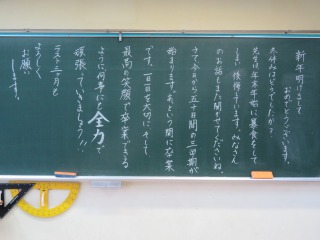 新年明けまして
おめでとうございます。
冬休みはどうでしたか？
先生は年末年始に暴食をして
しまい後悔しています。みなさん
のお話もまた聞かせてくださいね。
さて今日から五十日間の三学期が
始まります。あという間に卒業
です。一日一日を大切に、そして
最高の笑顔で卒業できる
ように何事にも全力で
頑張っていきましょう！！
ラスト三ヶ月も
よろしく
お願い
します。